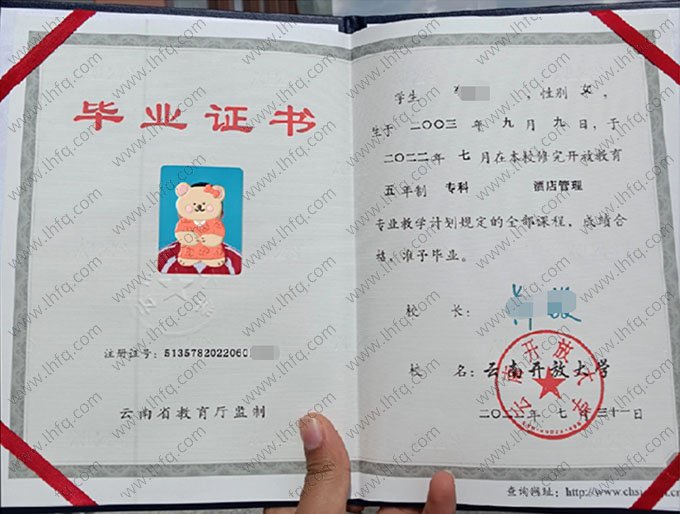 毕业证书
注册证号：5135782022060
云南省教育厅监制
学生 ，性别 女，
生于 二〇〇三 年 九 月 九 日，于
二〇二二年 七 月在本校修完开放教育
五年制 专科 酒店管理
专业教学计划规定的全部课程，成绩合
格，准予毕业。
校 长：
校 名：云南开放大学
云南开放大学
二〇二二年 七 月 三十一日
查询网址：http://www.chsi
www.lhfq.com